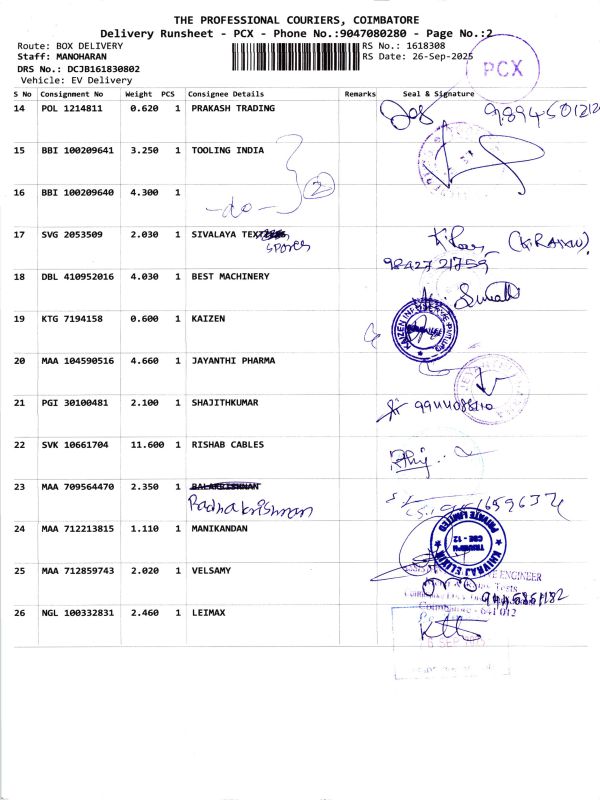 THE PROFESSIONAL COURIERS, COIMBATORE
Delivery Runsheet - PCX - Phone No.:9047080280 - Page No.:2
Route: BOX DELIVERY
RS No.: 1618308
Staff: MANOHARAN
RS Date: 26-Sep-2025
DRS No.: DCJB161830802
Vehicle: EV Delivery
PCX
S No Consignment No Weight PCS Consignee Details Remarks Seal & Signature
14 POL 1214811 0.620 1 PRAKASH TRADING
15 BBI 100209641 3.250 1 TOOLING INDIA
16 BBI 100209640 4.300 1 -do- 2
17 SVG 2053509 2.030 1 SIVALAYA spores (KIRAN)
98427 21759
18 DBL 410952016 4.030 1 BEST MACHINERY
19 KTG 7194158 0.600 1 KAIZEN
20 MAA 104590516 4.660 1 JAYANTHI PHARMA
21 PGI 30100481 2.100 1 SHAJITHKUMAR
22 SVK 10661704 11.600 1 RISHAB CABLES
23 MAA 709564470 2.350 1 BALAKRISHNAN
Radhakrishnan
24 MAA 712213815 1.110 1 MANIKANDAN
KHIVRAJ ELIXIR PRIVATE LIMITED
CBE - 12
25 MAA 712859743 2.020 1 VELSAMY
ENGINEER
Coimbatore - 641 012
26 NGL 100332831 2.460 1 LEIMAX